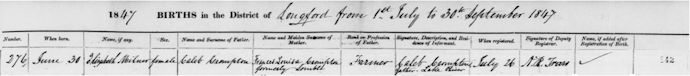 1847 BIRTHS in the District of Longford from 1st July to 30th September 1847
Number. When born. Name, if any. Sex. Name and Surname of Father. Name and Maiden Surname of Mother. Rank or Profession of Father. Signature, Description, and Residence of Informant. When registered. Signature of Deputy Registrar. Name, if added after Registration of Birth.
276 June 30 Elizabeth female Caleb Crompton Louisa Crompton formerly Farmer Caleb Crompton father Lake River July 26 N.R.